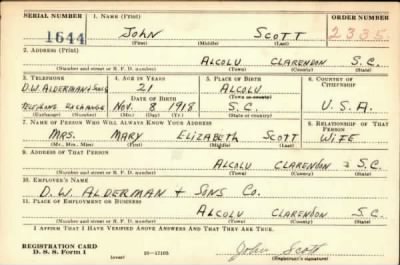 SERIAL NUMBER 1. NAME (Print) ORDER NUMBER
1644 JOHN SCOTT 2335
(First) (Middle) (Last)
2. ADDRESS (Print)
ALCOLU CLARENDON S.C.
(Number and street or R. F. D. number) (Town) (County) (State)
3. TELEPHONE 4. AGE IN YEARS 5. PLACE OF BIRTH 6. COUNTRY OF CITIZENSHIP
D.W. ALDERMAN & SONS 21 ALCOLU
DATE OF BIRTH (Town or county)
TELEPHONE EXCHANGE NOV. 8 1918 S.C. U.S.A.
(Exchange) (Number) (Mo.) (Day) (Yr.) (State or country)
7. NAME OF PERSON WHO WILL ALWAYS KNOW YOUR ADDRESS 8. RELATIONSHIP OF THAT PERSON
MRS. MARY ELIZABETH SCOTT WIFE
(Mr., Mrs., Miss) (First) (Middle) (Last)
9. ADDRESS OF THAT PERSON
ALCOLU CLARENDON S.C.
(Number and street or R. F. D. number) (Town) (County) (State)
10. EMPLOYER'S NAME
D.W. ALDERMAN & SONS CO.
11. PLACE OF EMPLOYMENT OR BUSINESS
ALCOLU CLARENDON S.C.
(Number and street or R. F. D. number) (Town) (County) (State)
I AFFIRM THAT I HAVE VERIFIED ABOVE ANSWERS AND THAT THEY ARE TRUE.
REGISTRATION CARD John Scott
D. S. S. Form 1 (over) 16—17105 (Registrant's signature)